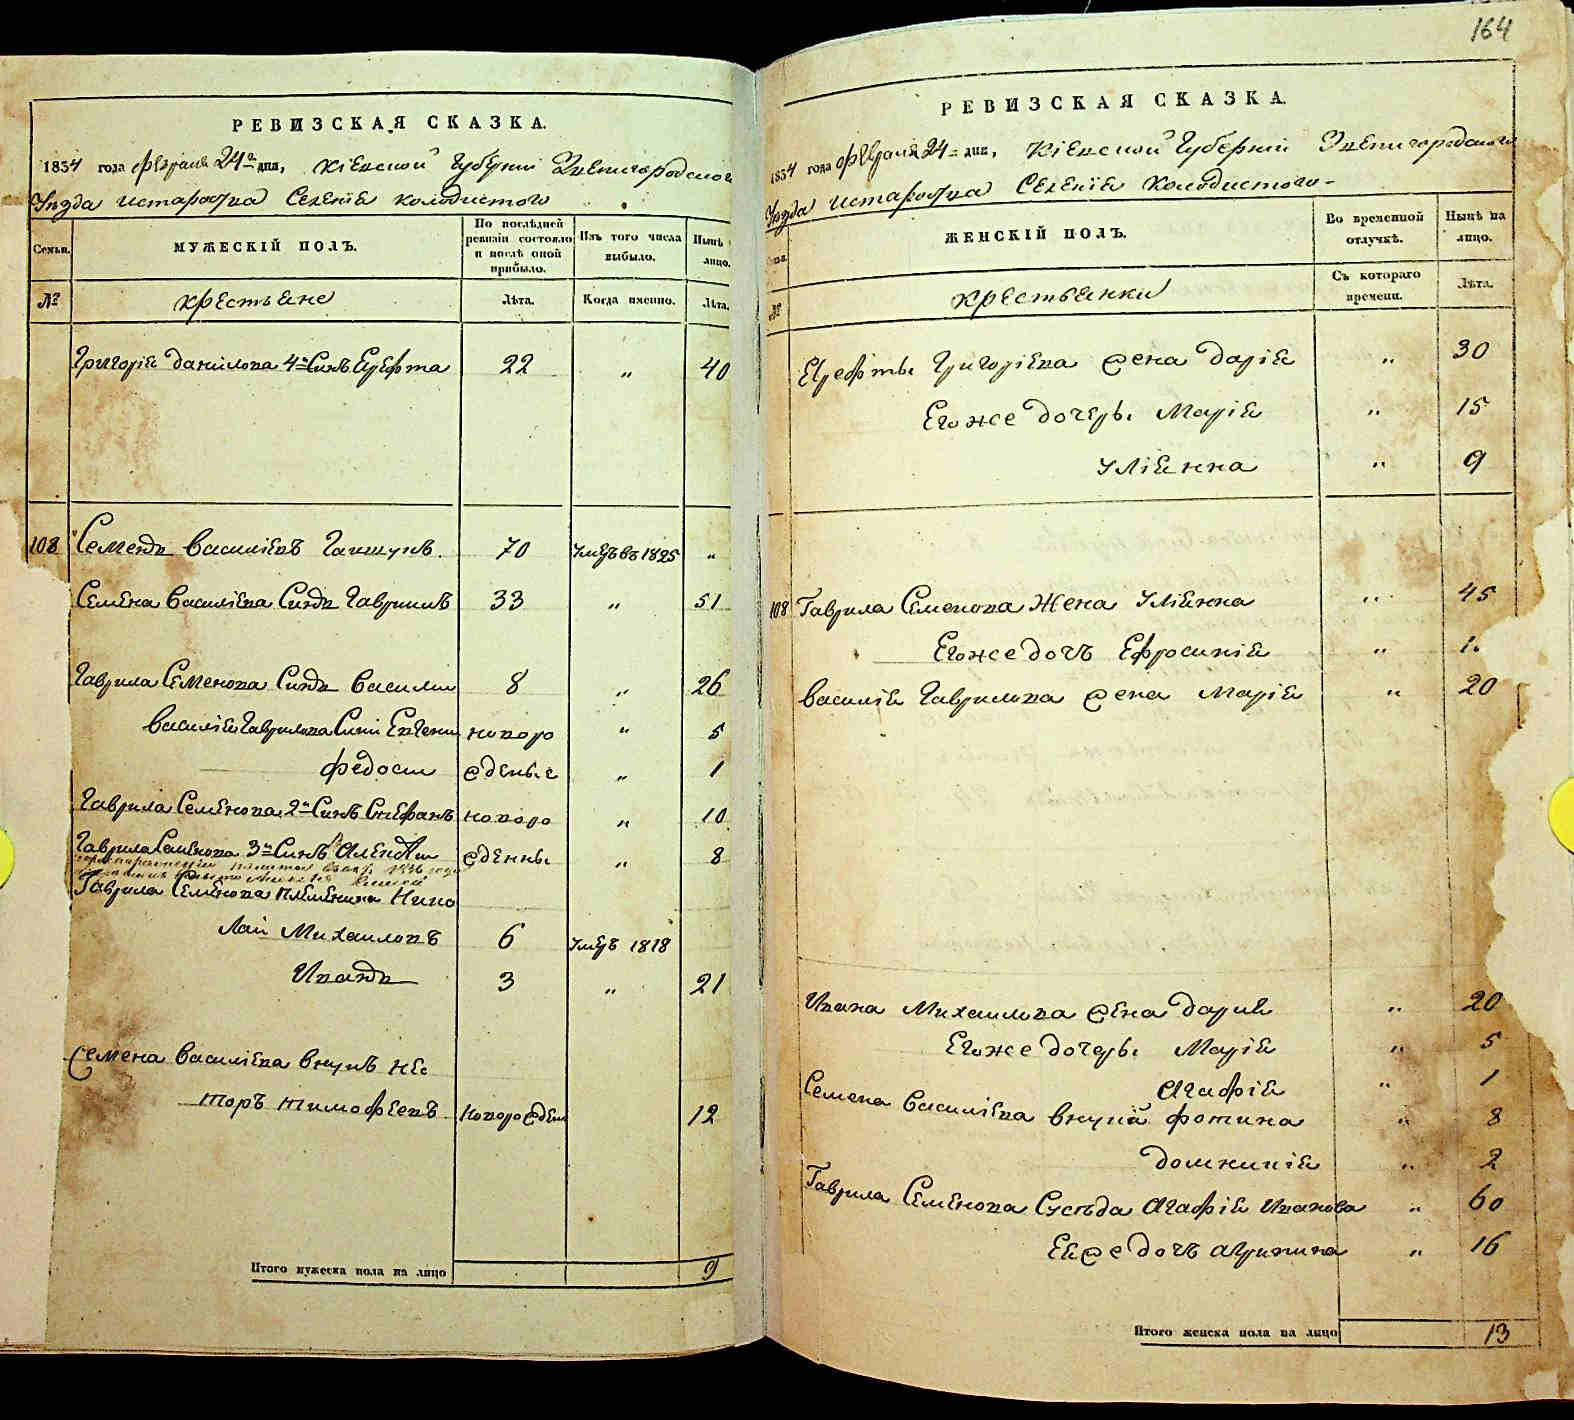 164
РЕВИЗСКАЯ СКАЗКА.
1834 года февраля 24 дня, Кіевской Губерніи Звенигородского
Уезда Селеніе Колодистого
Семьи. МУЖЕСКІЙ ПОЛЪ. По послѣдней ревизіи состояло и послѣ оной прибыло. Изъ того числа выбыло. Нынѣ лицо.
№ крестьяне Лѣта. Когда именно. Лѣта.
Григорія Данилова 4й Сынъ 22 „ 40
108 Семенъ Василіевъ 70 умеръ въ 1825 „
Семена Василіева Сынъ Гаврилъ 33 „ 51
Гаврила Семенова Сынъ Василій 8 „ 26
Василія Гаврилова Евгеній новоро „ 5
Федосій жденые „ 1
Гаврила Семенова 2й Сынъ Стефанъ новоро „ 10
Гаврила Семенова 3й Сынъ ждены „ 8
Гаврила Семенова племеникъ Нико
лай Михаиловъ 6 умеръ 1818
Иванъ 3 „ 21
Семена Василіева внукъ Нес
торъ Тимофеевъ новорожден 12
Итого мужеска пола на лицо 9
РЕВИЗСКАЯ СКАЗКА.
1834 года февраля 24 дня, Кіевской Губерніи Звенигородского
Уезда Селеніе Колодистого
ЖЕНСКІЙ ПОЛЪ. Во временной отлучкѣ. Нынѣ на лицо.
№ крестьянки Съ котораго времени. Лѣта.
Григоріева жена Дарія „ 30
Его же дочерь Марія „ 15
Уліянна „ 9
108 Гаврила Семенова Жена Уліянна „ 45
Его же дочъ Ефросинія „ 1.
Василія Гаврилова жена Марія „ 20
Ивана Михаилова жена Дарія „ 20
Его же дочерь Марія „ 5
Агафія „ 1
Семена Василіева внуки Фотина „ 8
Домникія „ 2
Гаврила Семенова Сусѣда Агафія Иванова „ 60
Ея же дочъ „ 16
Итого женска пола на лицо 13